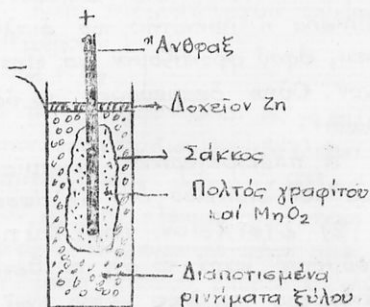 +
Ἄνθραξ
−
Δοχεῖον Zn
Σάκκος
Πολτός γραφίτου
καί MnO₂
Διαποτισμένα
ρινήματα ξύλου